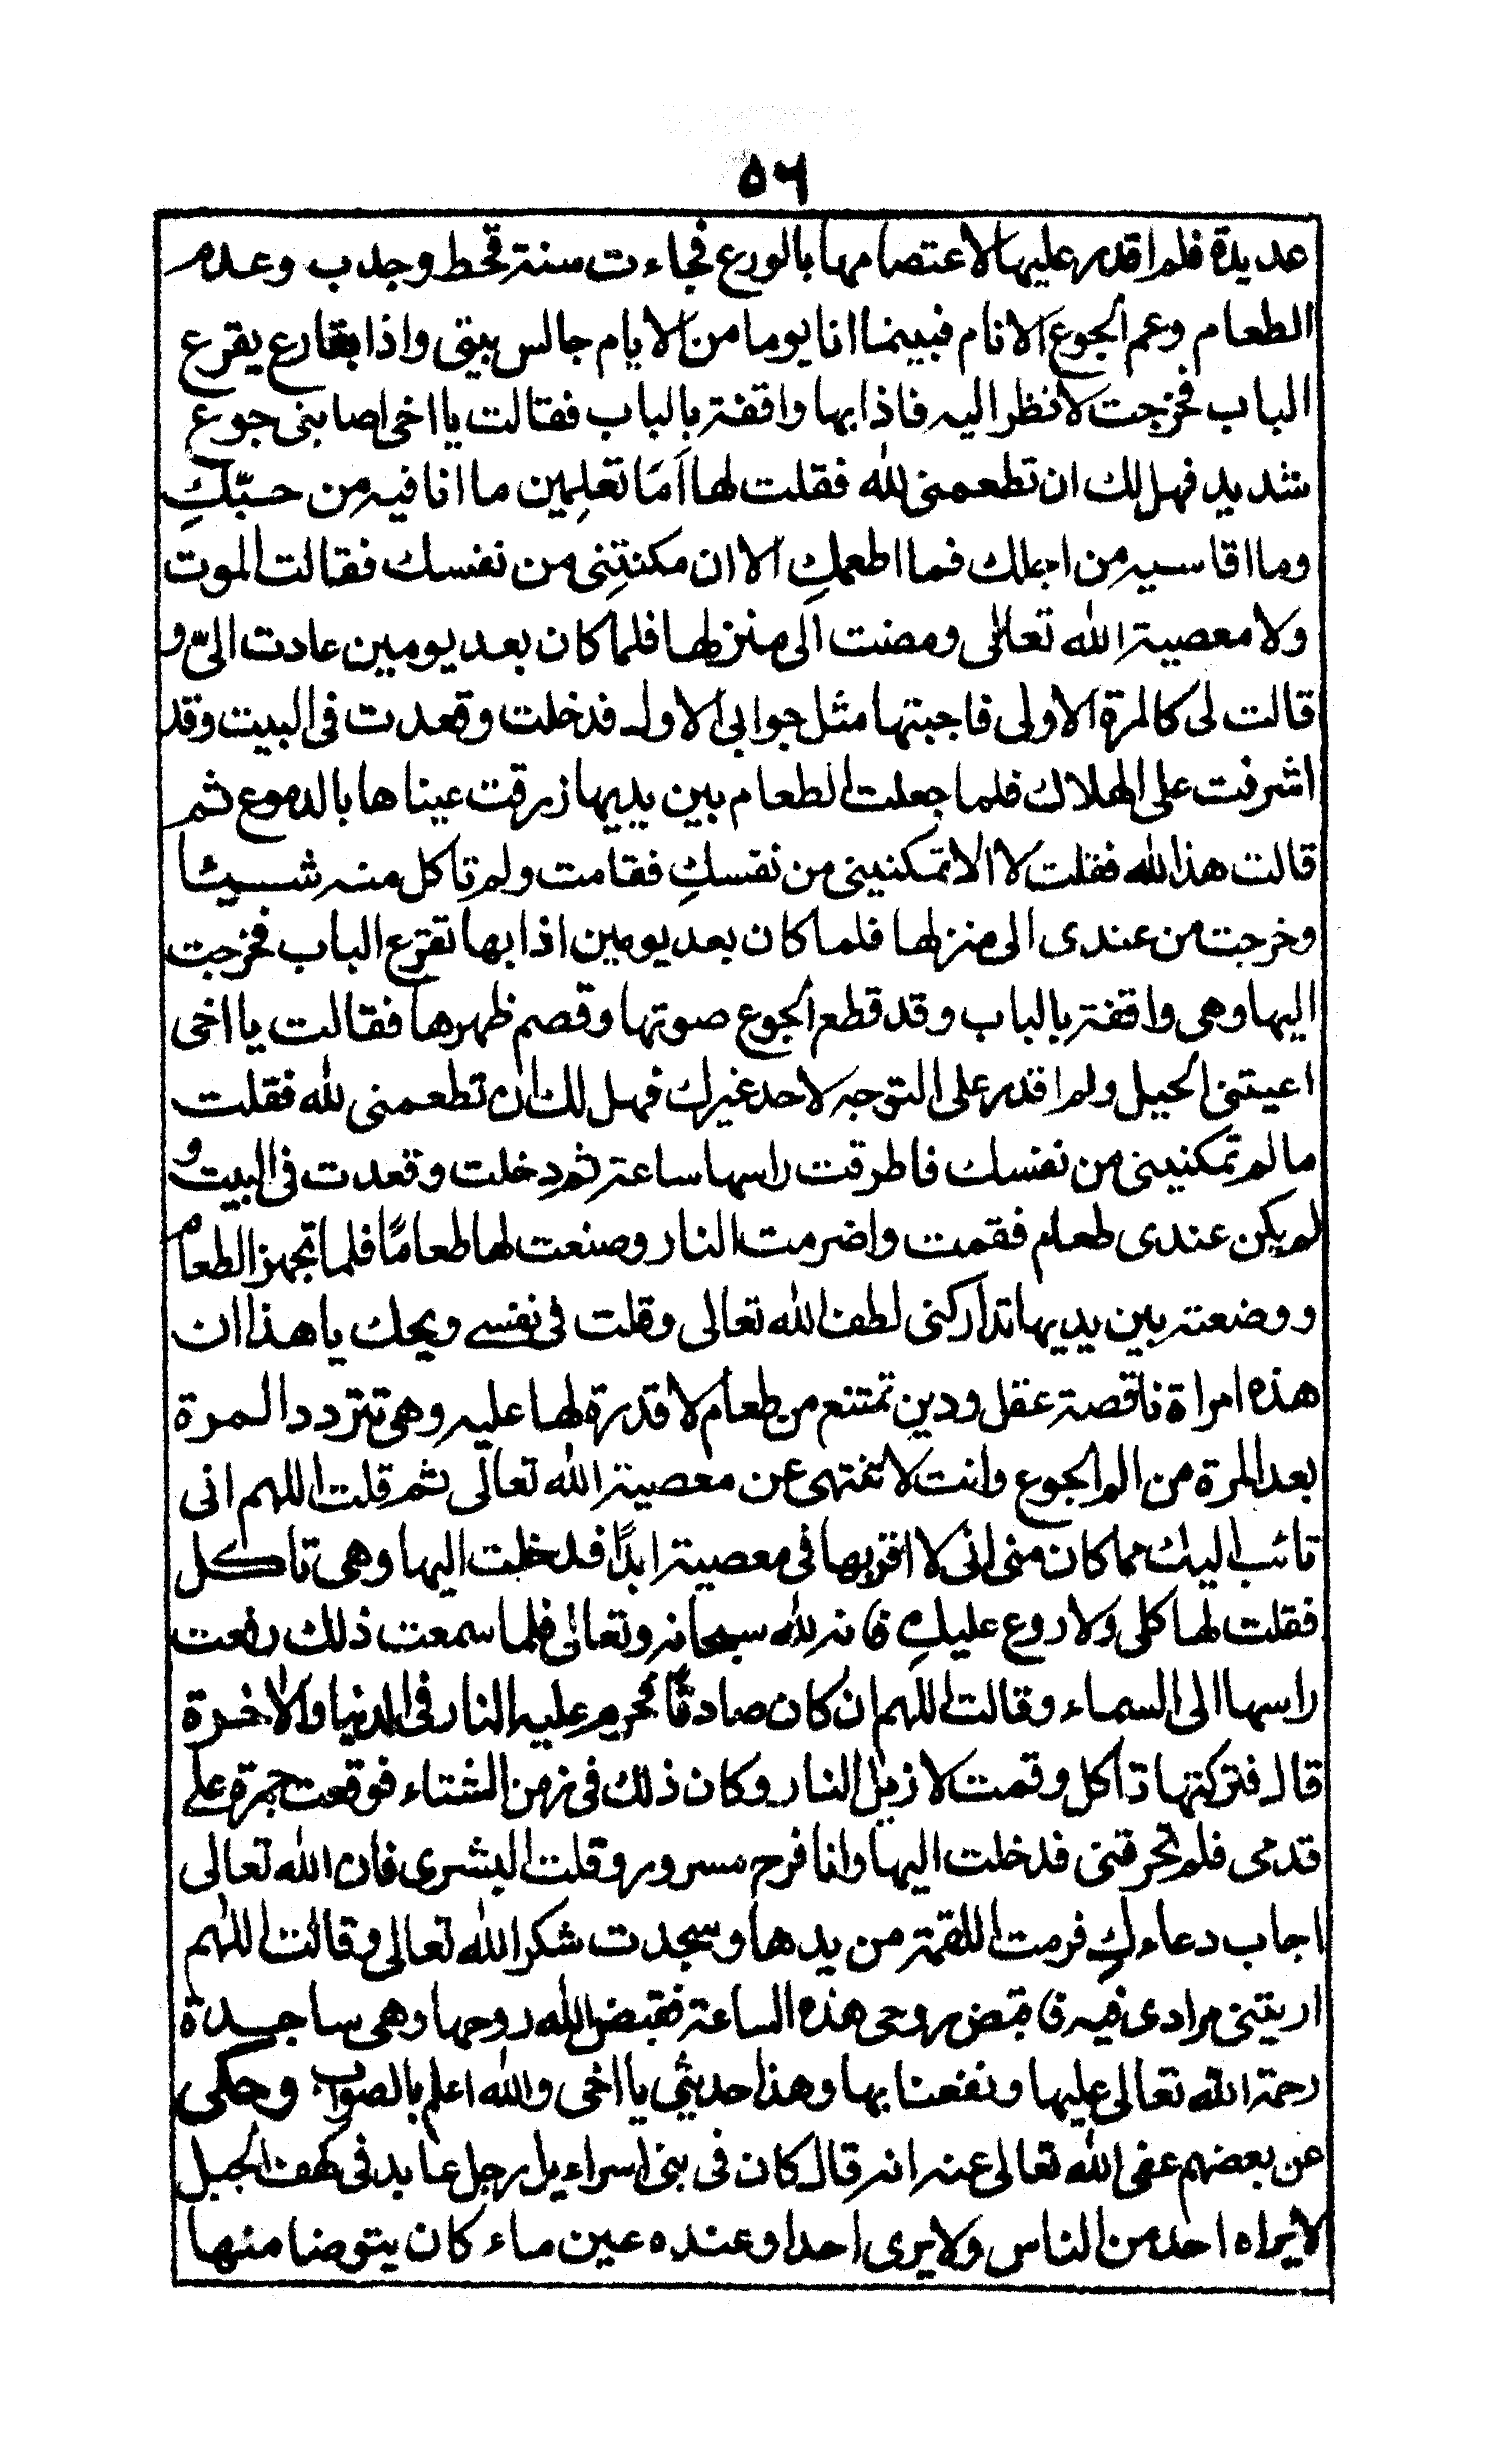 ٥٦
عديدة فلم اقدر عليها لاعتصامها بالورع فجاءت سنة قحط وجدب وعدم
الطعام وعم الجوع الانام فبينما انا يوما من الايام جالس ببيتى واذا بقارع يقرع
الباب فخرجت لانظر اليه فاذا بها واقفة بالباب فقالت يا اخى اصابنى جوع
شديد فهل لك ان تطعمنى لله فقلت لها اَمَا تعلمِين ما انا فيه من حبّكِ
وما اقاسيه من اجلك فما اطعمكِ الا ان مكنتِنى من نفسك فقالت الموت
ولا معصية الله تعالى ومضت الى منزلها فلما كان بعد يومين عادت الىّ و
قالت لى كالمرة الاولى فاجبتها مثل جوابى الاول فدخلت وقعدت فى البيت وقد
اشرفت على الهلاك فلما جعلت الطعام بين يديها زرقت عيناها بالدموع ثم
قالت هذا لله فقلت لا الا تمكنينى من نفسكِ فقامت ولم تاكل منه شيئا
وخرجت من عندى الى منزلها فلما كان بعد يومين اذا بها تقرع الباب فخرجت
اليها وهى واقفة بالباب وقد قطع الجوع صوتها وقصم ظهرها فقالت يا اخى
اعيتنى الحيل ولم اقدر على التوجه لاحد غيرك فهل لك ان تطعمنى لله فقلت
ما لم تمكنينى من نفسك فاطرقت راسها ساعة ثم دخلت وقعدت فى البيت و
لم يكن عندى طعام فقمت واضرمت النار وصنعت لها طعامًا فلما تجهز الطعام
ووضعته بين يديها تداركنى لطف الله تعالى وقلت فى نفسے ويحك يا هذا ان
هذه امراة ناقصة عقل ودين تمتنع من طعام لا قدرة لها عليه وهى تتردد المرة
بعد المرة من الم الجوع وانت لا تنتهى عن معصية الله تعالى ثم قلت اللهم انى
تائب اليك مما كان منى انى لا اقربها فى معصية ابدًا فدخلت اليها وهى تاكل
فقلت لها كلى ولا روع عليكِ فانه لله سبحانه وتعالى فلما سمعت ذلك رفعت
راسها الى السماء وقالت اللهم ان كان صادقًا فحرم عليه النار فى الدنيا والاخرة
قال فتركتها تاكل وقمت لازيل النار وكان ذلك فى زمن الشتاء فوقعت جمرة على
قدمى فلم تحرقنى فدخلت اليها وانا فرح مسرور وقلت البشرى فان الله تعالى
اجاب دعاءكِ فرمت اللقمة من يدها وسجدت شكرا لله تعالى وقالت اللهم
اريتنى مرادى فيه فاقبض روحى هذه الساعة فقبض الله روحها وهى ساجدة
رحمة الله تعالى عليها ونفعنا بها وهذا حديثى يا اخى والله اعلم بالصواب وحكى
عن بعضهم عفى الله تعالى عنه انه قال كان فى بنى اسراءيل رجل عابد فى كهف الجبل
لا يراه احد من الناس ولا يرى احدا وعنده عين ماء كان يتوضا منها